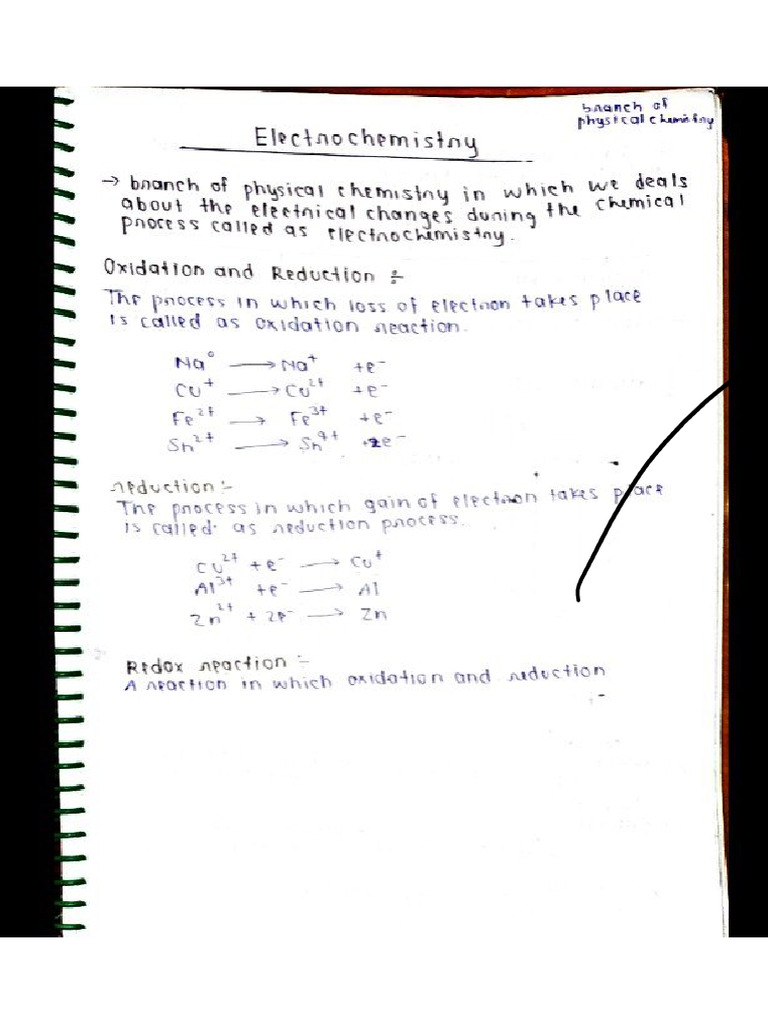 branch of
physical chemistry
Electrochemistry
→ branch of physical chemistry in which we deals
about the electrical changes during the chemical
process called as electrochemistry.
Oxidation and Reduction :-
The process in which loss of electron takes place
is called as oxidation reaction.
Na⁰ → Na⁺ +e⁻
Cu⁺ → Cu²⁺ +e⁻
Fe²⁺ → Fe³⁺ +e⁻
Sn²⁺ → Sn⁴⁺ +2e⁻
reduction :-
The process in which gain of electron takes place
is called as reduction process.
Cu²⁺ + e⁻ → Cu⁺
Al³⁺ +e⁻ → Al
Zn²⁺ + 2e⁻ → Zn
Redox reaction :-
A reaction in which oxidation and reduction